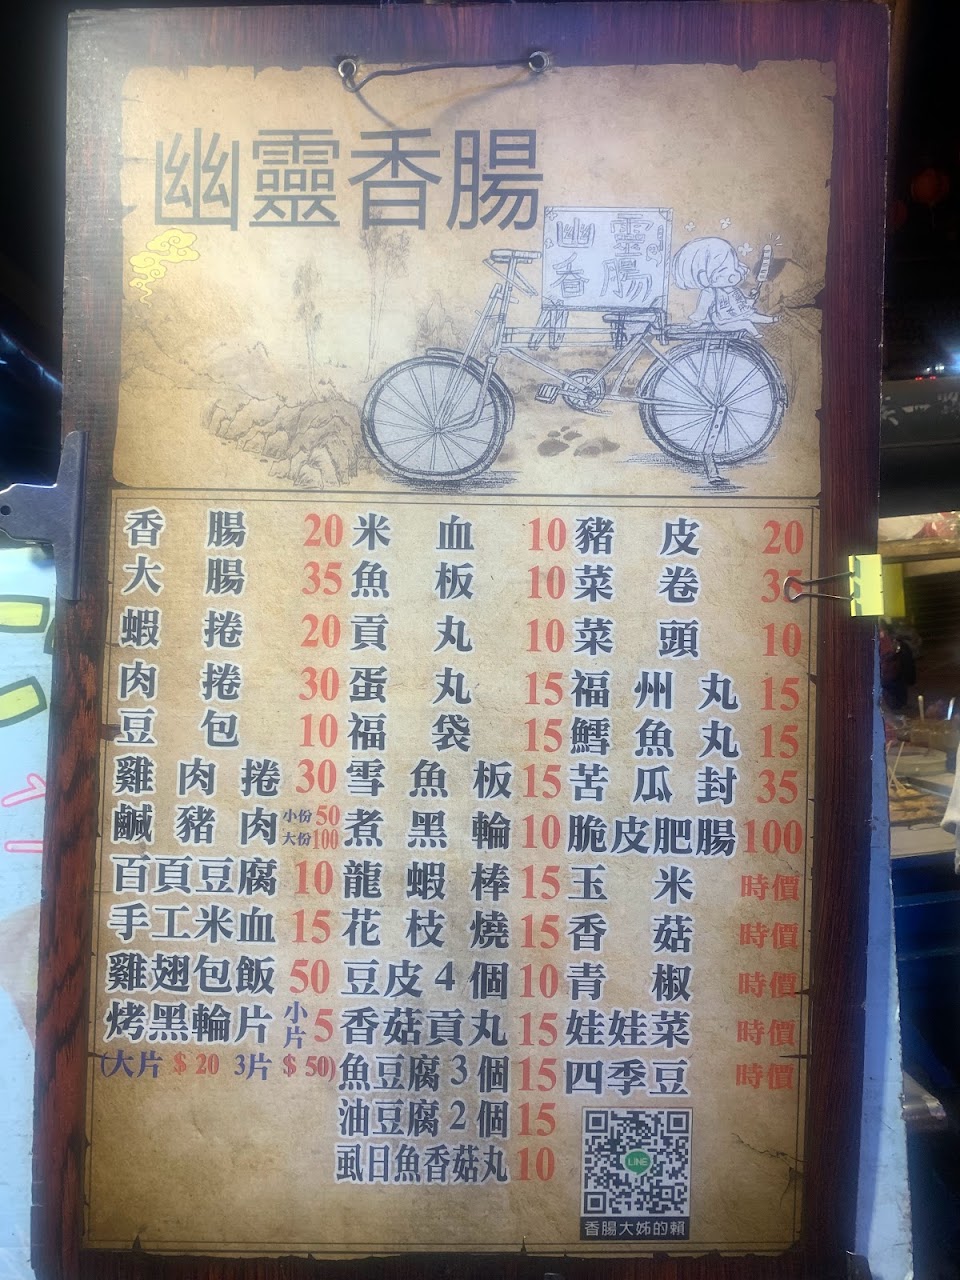 幽靈香腸
幽靈
香腸
香腸 20
大腸 35
蝦捲 20
肉捲 30
豆包 10
雞肉捲 30
鹹豬肉 小份50 大份100
百頁豆腐 10
手工米血 15
雞翅包飯 50
烤黑輪片 小片 5
(大片 $20 3片 $50)
米血 10
魚板 10
貢丸 10
蛋丸 15
福袋 15
雪魚板 15
煮黑輪 10
龍蝦棒 15
花枝燒 15
豆皮4個 10
香菇貢丸 15
魚豆腐3個 15
油豆腐2個 15
虱目魚香菇丸 10
豬皮 20
菜卷 35
菜頭 10
福州丸 15
鱈魚丸 15
苦瓜封 35
脆皮肥腸 100
玉米 時價
香菇 時價
青椒 時價
娃娃菜 時價
四季豆 時價
LINE
香腸大姊的賴